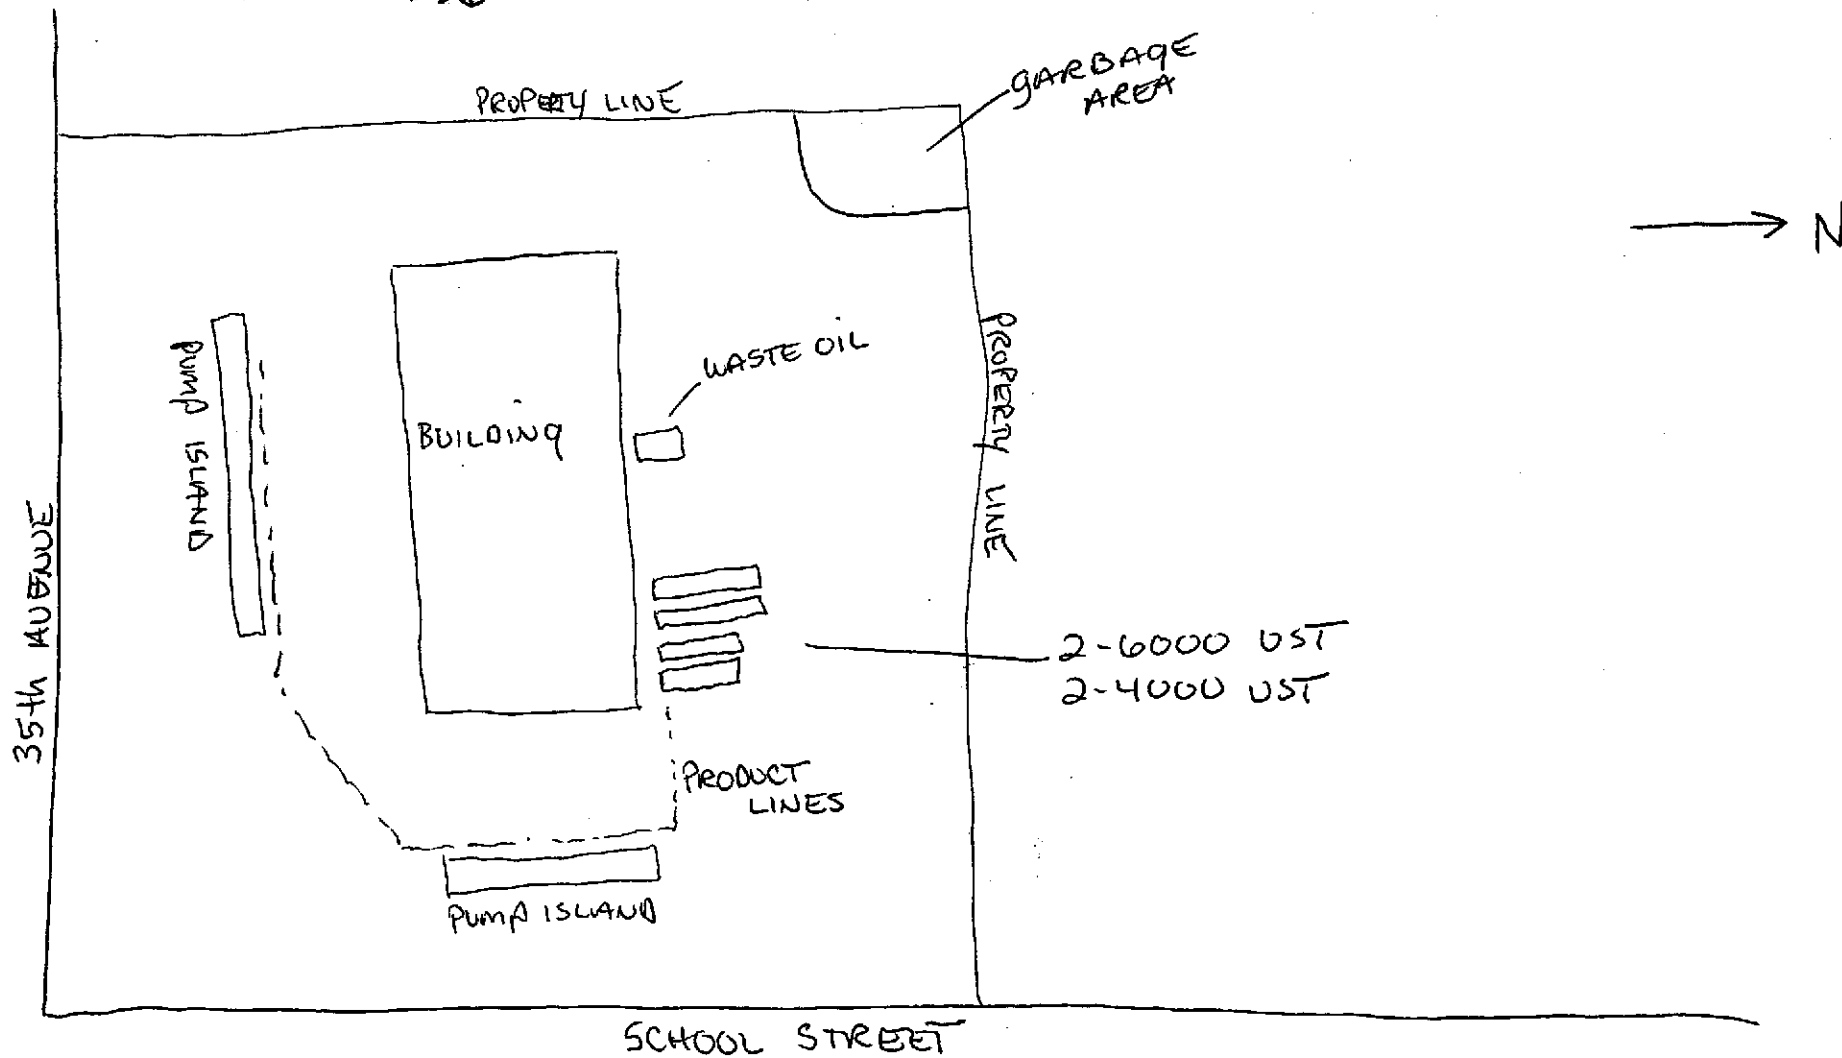 PROPERTY LINE
GARBAGE
AREA
N
PUMP ISLAND
BUILDING
WASTE OIL
PROPERTY LINE
35th AVENUE
2-6000 UST
2-4000 UST
PRODUCT
LINES
PUMP ISLAND
SCHOOL STREET